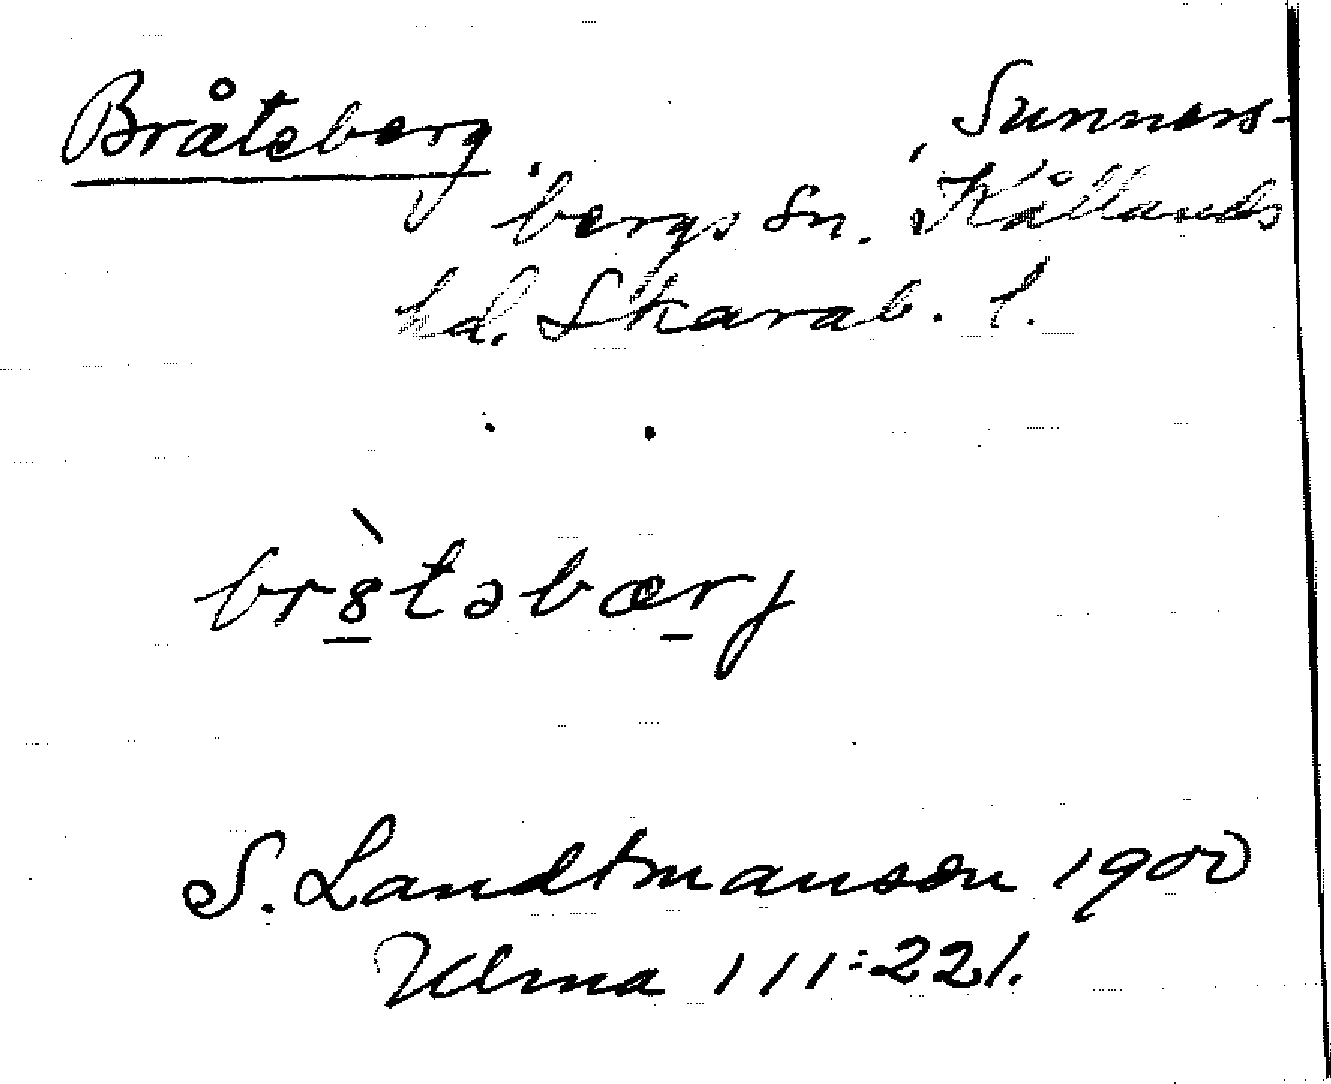 Bråteberg, Sunners-
bergs sn. Kållands
hd. Skarab. l.
br8̲̀təbær̲j
S. Landtmanson 1900
Ulma 111:221.